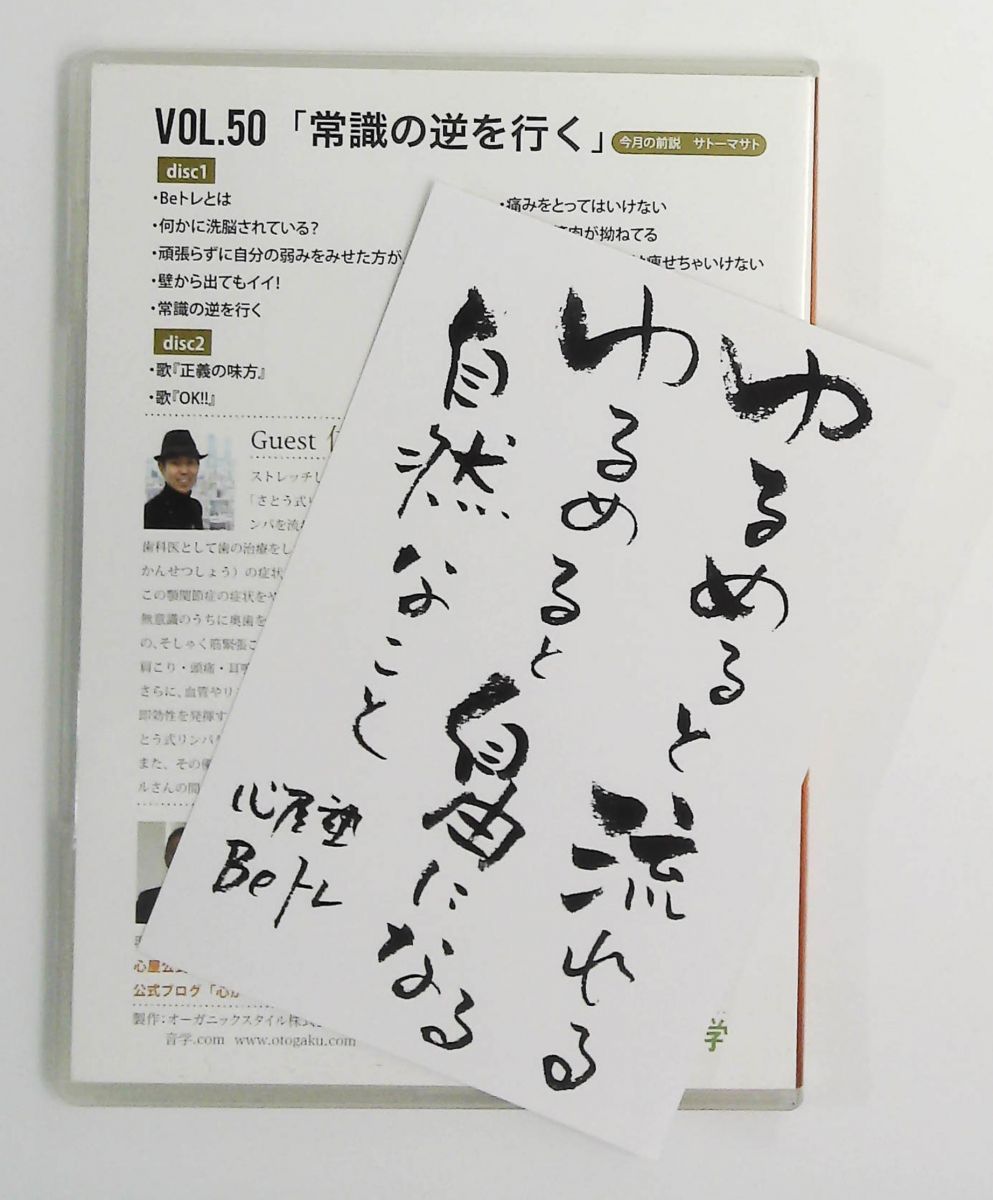 VOL.50「常識の逆を行く」
今月の前説 サトーマサト
disc1
・Beトレとは
・何かに洗脳されている?
・頑張らずに自分の弱みをみせた方が
・壁から出てもイイ!
・常識の逆を行く
・痛みをとってはいけない
肉が拗ねてる
痩せちゃいけない
disc2
・歌『正義の味方』
・歌『OK!!』
Guest
ストレッチし
「さとう式リ
ンパを流
歯科医として歯の治療をし
かんせつしょう）の症状
この顎関節症の症状をや
無意識のうちに奥歯を
の、そしゃく筋緊張こ
肩こり・頭痛・耳鳴
さらに、血管やリ
即効性を発揮す
とう式リンパ
また、その
ルさんの間
心屋公
公式ブログ「心が
製作：オーガニックスタイル株式
音学.com www.otogaku.com
学
ゆるめると流れる
ゆるめると自由になる
自然なこと
心屋塾
Beトレ